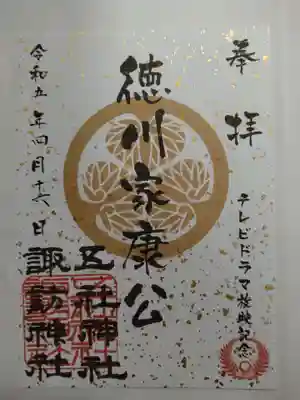 奉拝
テレビドラマ放映記念
徳川家康公
五社神社
諏訪神社
令和五年四月十六日